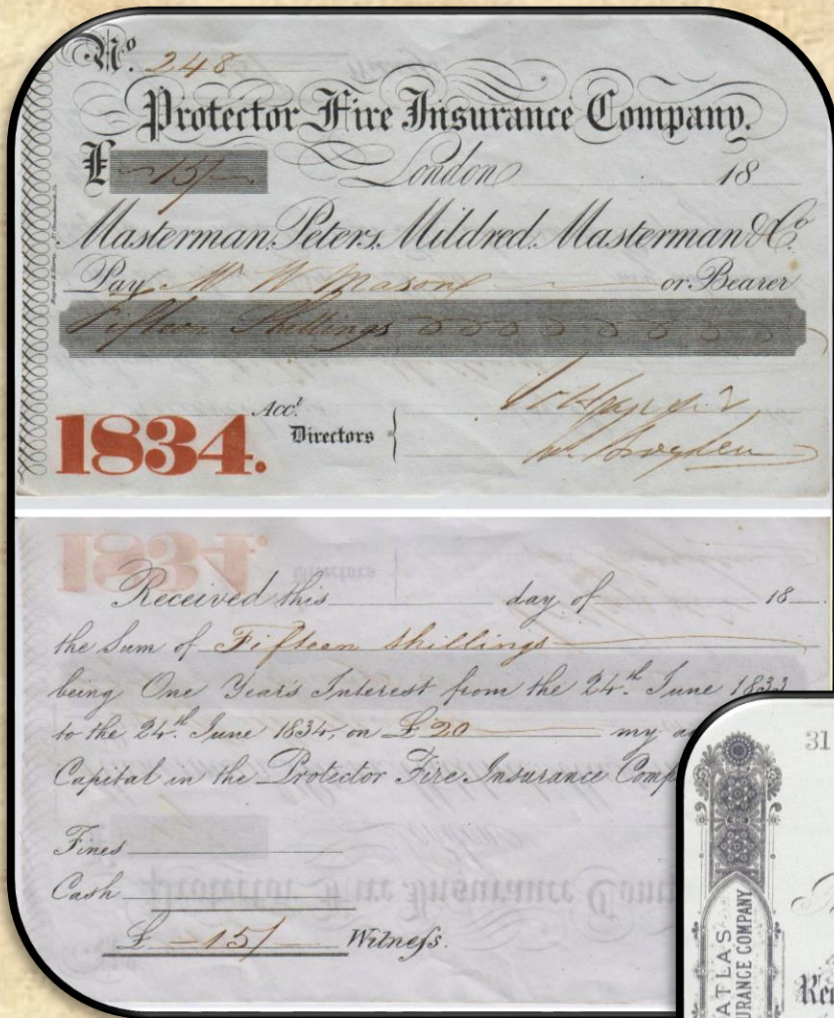 No. 248
Protector Fire Insurance Company.
£ -15/- London 18
Masterman, Peters, Mildred, Masterman & Co.
Pay Mr W Mason or Bearer
Fifteen Shillings
Acct.
Directors
1834.
Received this day of 18
the Sum of Fifteen shillings
being One Year's Interest from the 24th. June 1833
to the 24th. June 1834, on £ 20 my
Capital in the Protector Fire Insurance Comp
Fines
Cash
£ -15/- Witness.
31
ATLAS
URANCE COMPANY
Rec